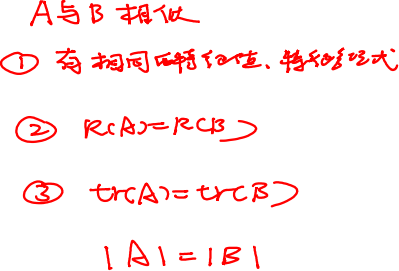 A与B相似
① 有相同的特征值、特征多项式
② R(A)=R(B)
③ tr(A)=tr(B)
|A|=|B|